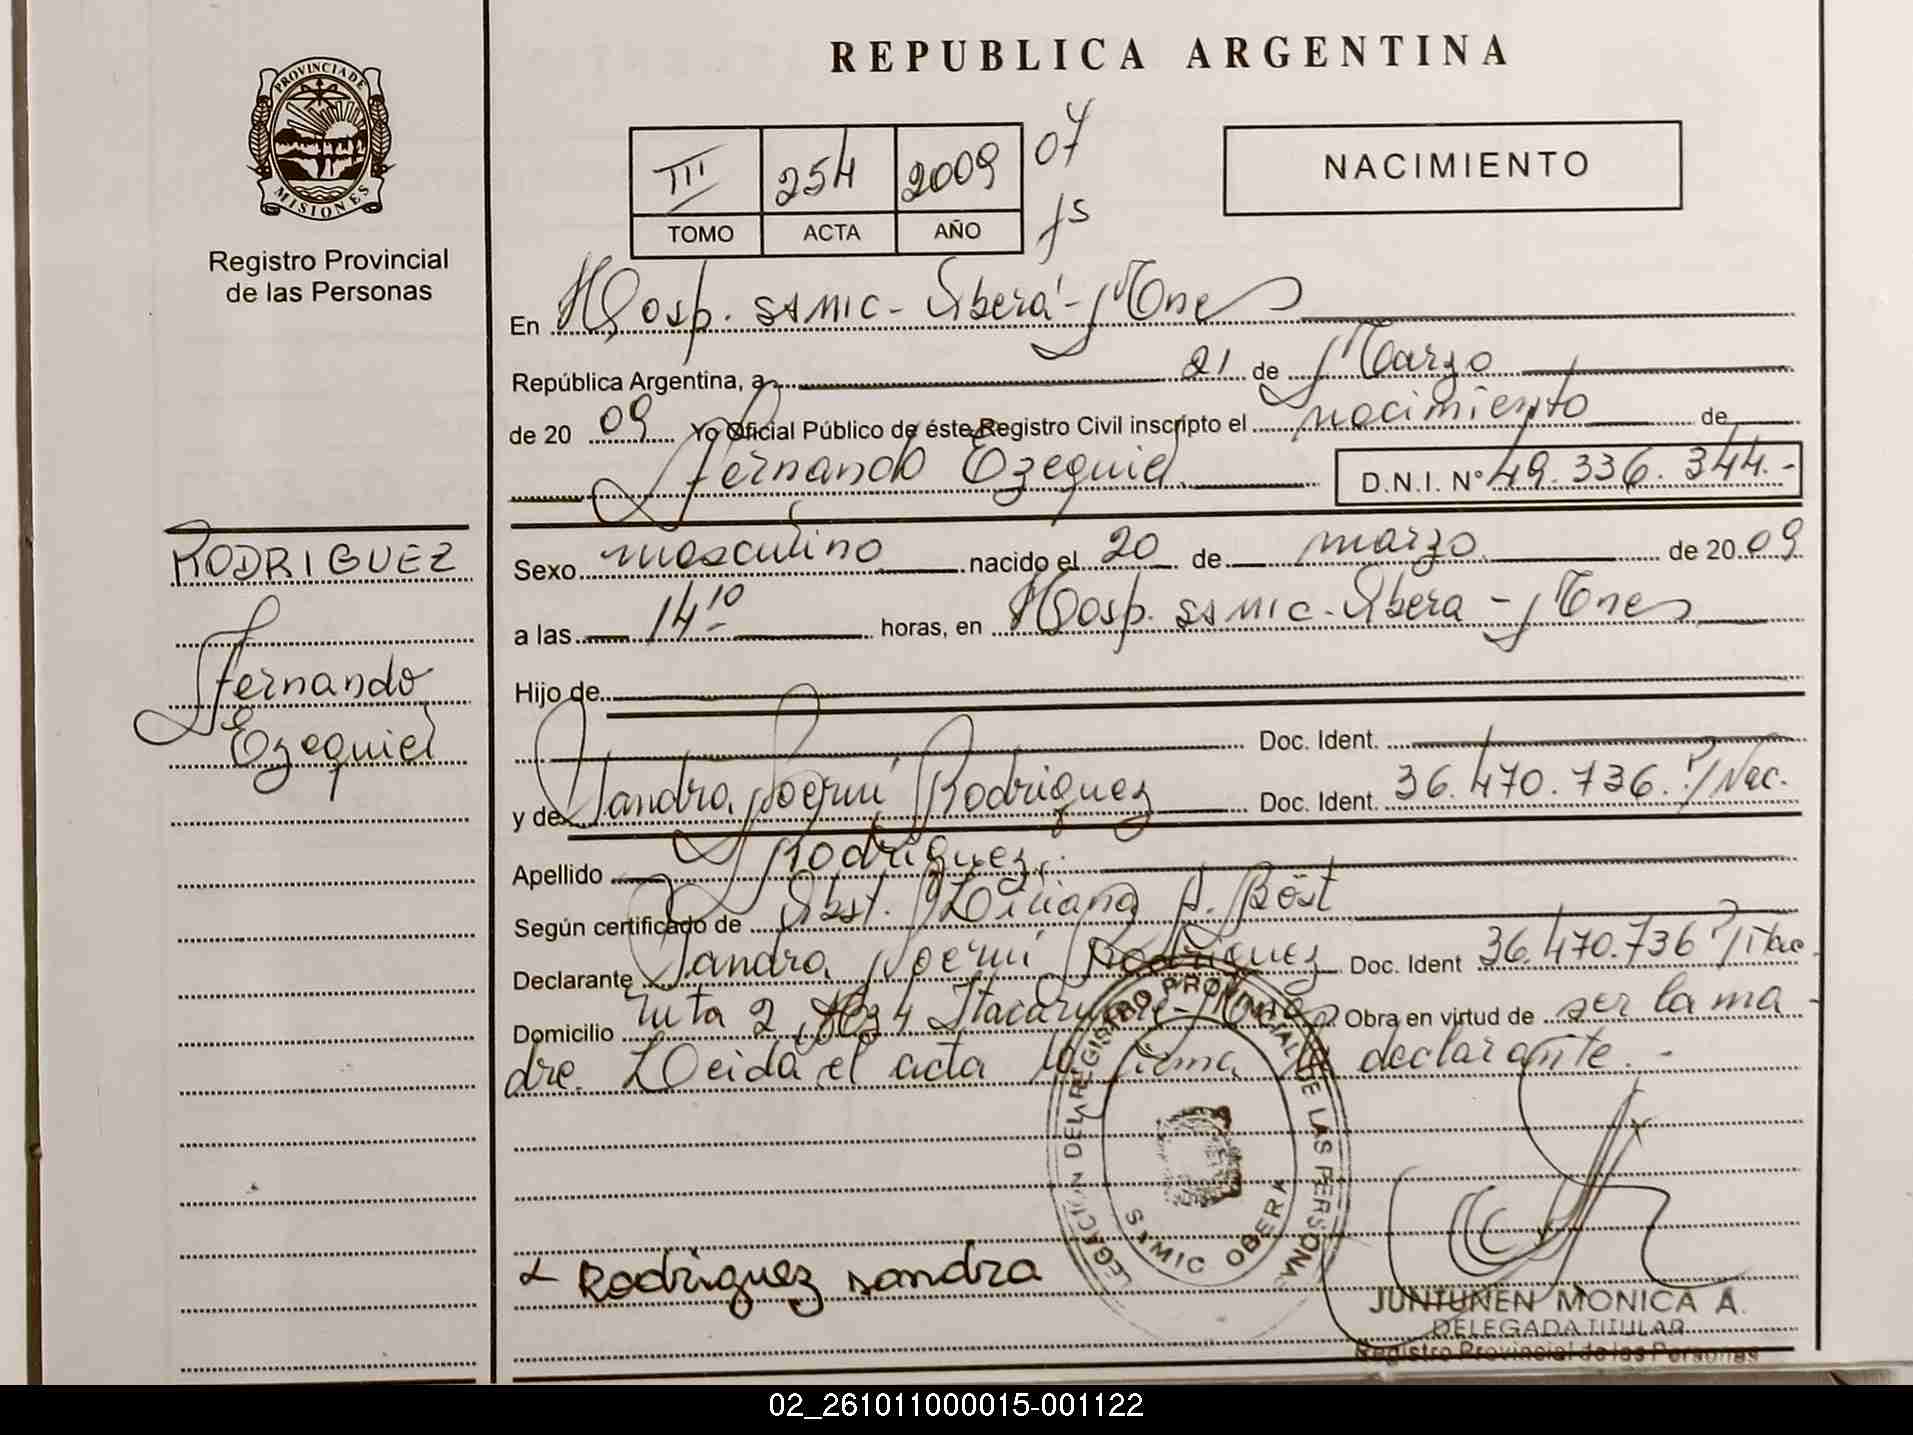 REPUBLICA ARGENTINA
PROVINCIA DE
MISIONES
Registro Provincial
de las Personas
III 254 2009 04
TOMO ACTA AÑO fs
NACIMIENTO
En Hosp. SAMIC - Oberá - Mnes
República Argentina, a 21 de Marzo
de 2009 Yo Oficial Público de éste Registro Civil inscripto el nacimiento de
Fernando Ezequiel D.N.I. N° 49.336.344.-
RODRIGUEZ
Fernando
Ezequiel
Sexo masculino nacido el 20 de marzo de 2009
a las 14 10 horas, en Hosp. SAMIC - Obera - Mnes
Hijo de
Doc. Ident.
y de Sandra Noemí Rodriguez Doc. Ident. 36.470.736.
Apellido Rodriguez
Según certificado de Obst. Liliana A. Böst
Declarante Sandra Noemí Rodriguez Doc. Ident 36.470.736
Domicilio ruta 2, Itacaruaré - Mnes Obra en virtud de ser la ma
dre. Leida el acta la firma la declarante.-
DELEGACION DEL REGISTRO PROVINCIAL DE LAS PERSONAS
SAMIC OBERA
Rodriguez Sandra
JUNTUNEN MONICA A.
DELEGADA TITULAR
Registro Provincial de las Personas
02_261011000015-001122